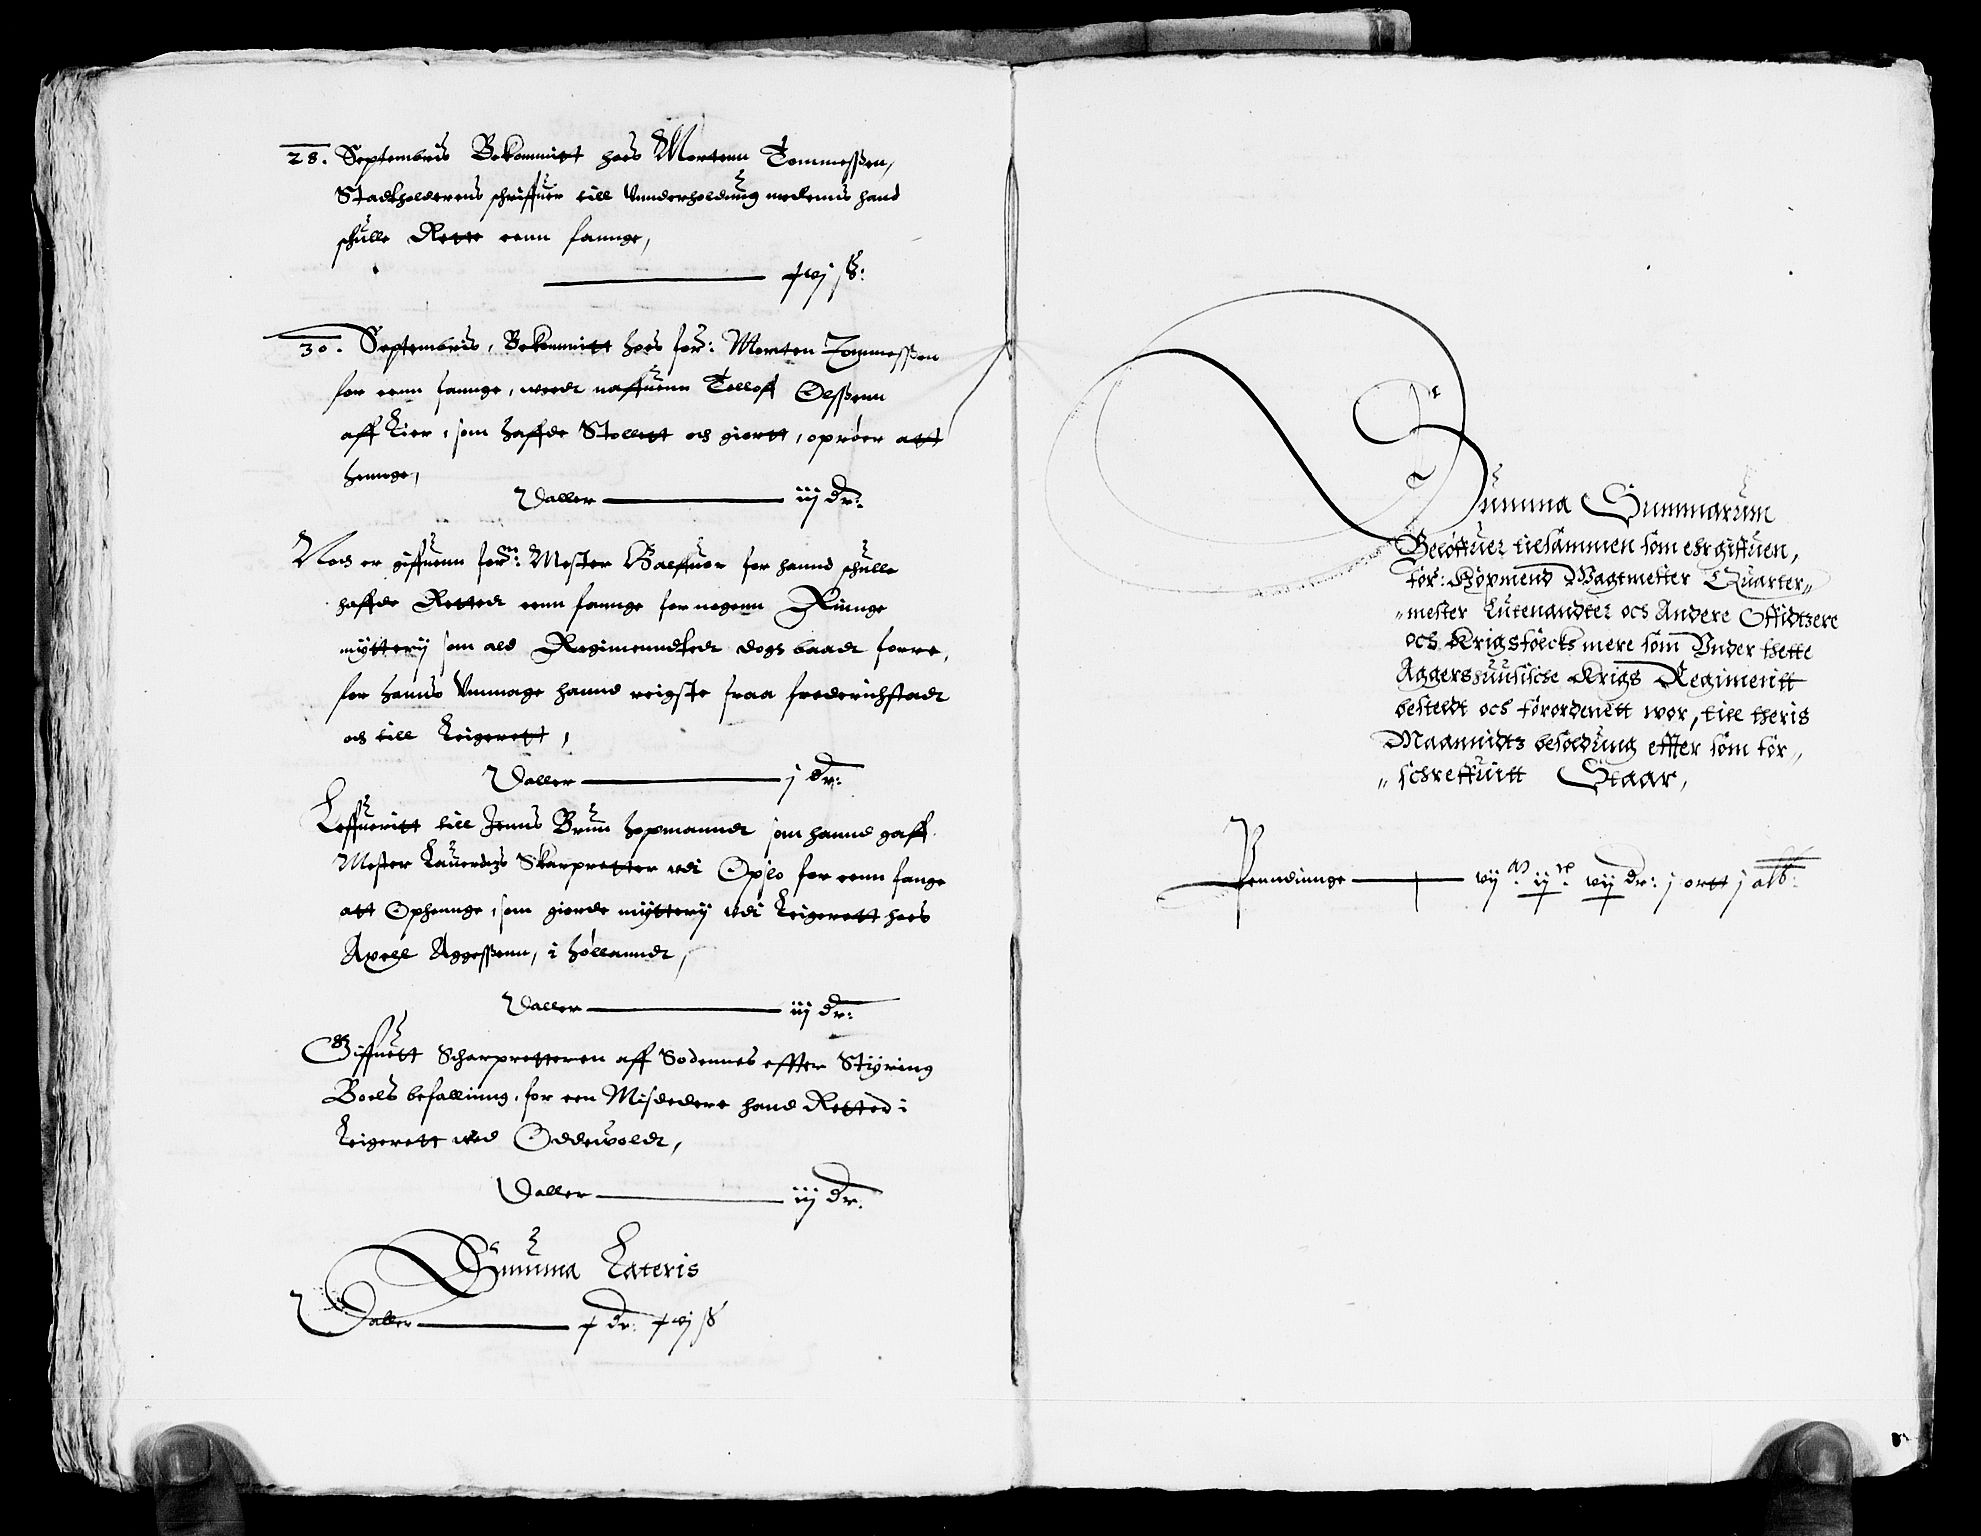 28. Septembris Bekommitt hoes Mortenn Tommeßen,
Stadtholderens schriffuer till Vnnderholdung medenns hand
schulle Rette eenn fannge,
xvj ß:
30. Septembris, Bekommitt hoes for: Morten Tommeßen
for eenn fannge, wedt naffuenn Tolloff Olßenn
aff Lier, som haffde Stollett och giortt, oprøer att
hennge,
Daller iij dr:
Noch er giffuenn forn: Mester Balffuor for hannd schulle
haffde Retted eenn fannge for nogenn Ringe
mytterij som ald Regimenndtedt dogs baadt forre,
for hanns Vnmage hannd reigste fraa frederichstadt
och till Leigerett,
Daller j dr:
Leffueritt till Jenns Brun hopmanndt som hannd gaff
Mester Lauerdtzs Skarpretter vdi Opslo for eenn fange
att Ophennge, som giorde mytterij vdi Leigerett hoes
Axell Aggeßenn, i Hollanndt,
Daller iij dr:
Giffuett Scharpretteren aff Sodennes effter Styring
Boels befallinng, for een Misdedere hand Retted i
Leigerett wed Oddewoldt,
Daller iij dr:
Summa Lateris
Daller x dr: xvj ß
Summa Summarum
Beløffuer tilsammen som ehr giffuen,
for: Høxmend Wagtmester Quarter-
mester Lutenandter och Andere Offidtzere
och Krigsfolcks mere som Vnder thette
Aggershuusische Krigs Regimentt
besteldt och forordenett wor, till theris
Maannidtz besoldung effter som for-
schreffuitt Staar,
Penndinnge vij M ij c vij dr: j ortt j alb: